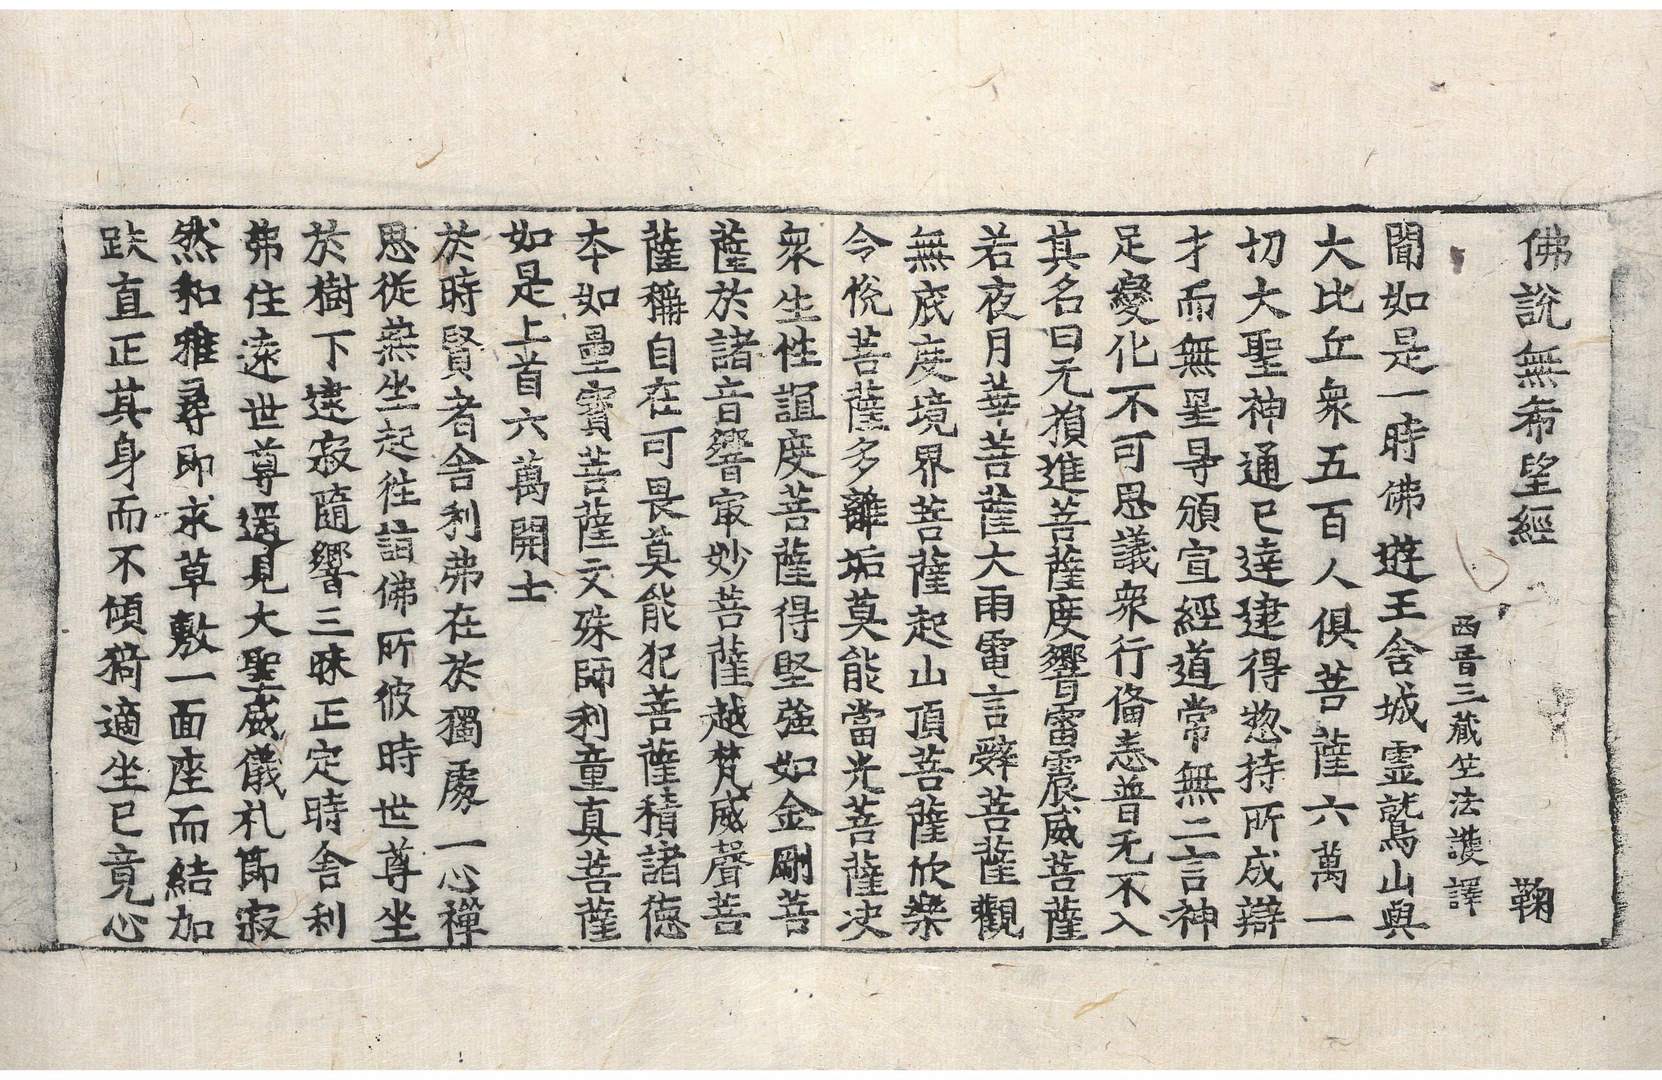 佛說無希望經 鞠
西晋三藏竺法護 譯
聞如是一時佛遊王舍城靈鷲山與
大比丘衆五百人俱菩薩六萬一
切大聖神通已達逮得惣持所成辯
才而無罣㝵頒宣經道常無二言神
足變化不可思議衆行備悉普无不入
其名曰元損進菩薩度響雷震威菩薩
若夜月華菩薩大雨雷言辭菩薩觀
無底度境界菩薩起山頂菩薩欣樂
令悅菩薩多離垢莫能當光菩薩决
衆生性誼度菩薩得堅強如金剛菩
薩於諸音響㝡妙菩薩越梵威聲菩
薩稱自在可畏莫能犯菩薩積諸德
本如畺寶菩薩文殊師利童真菩薩
如是上首六萬開士
於時賢者舍利弗在於獨處一心禪
思從燕坐起徃詣佛所彼時世尊坐
於樹下逮寂隨響三昧正定時舍利
弗住遠世尊遥見大聖威儀礼節寂
然和雅尋即求草敷一面座而結加
趺直正其身而不傾猗適坐已竟心